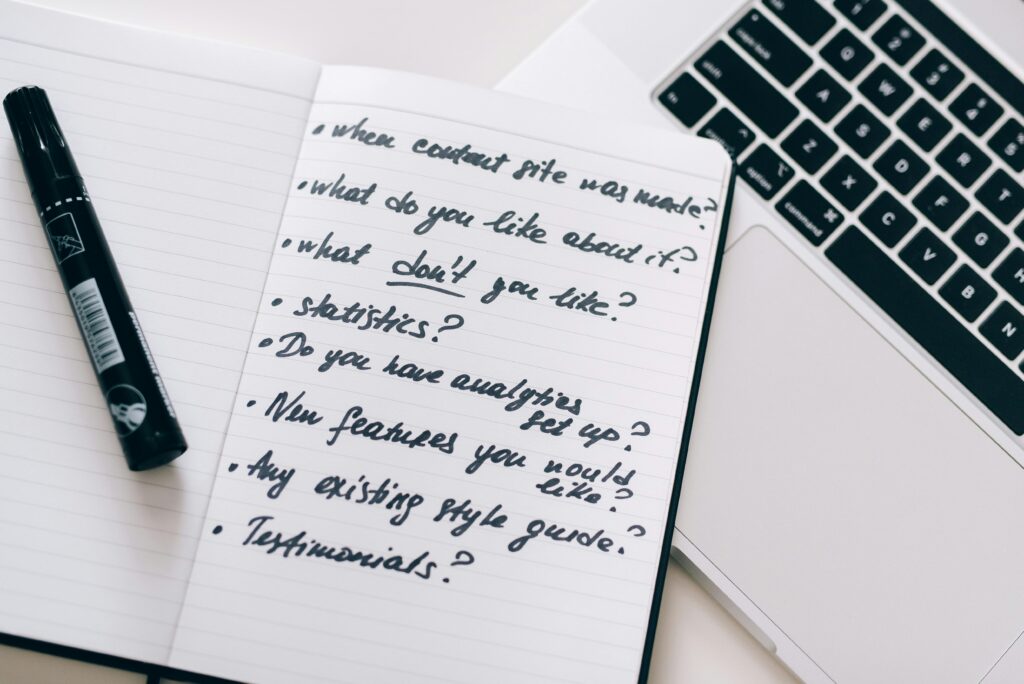 • when content site was made?
• what do you like about it?
• what don't you like?
• statistics?
• Do you have analytics
set up?
• New features you would
like?
• Any existing style guide?
• Testimonials?
tab
Q
W
E
R
T
A
S
D
F
G
H
shift
Z
X
C
V
B
N
fn
option
command ⌘
2
3
4
5